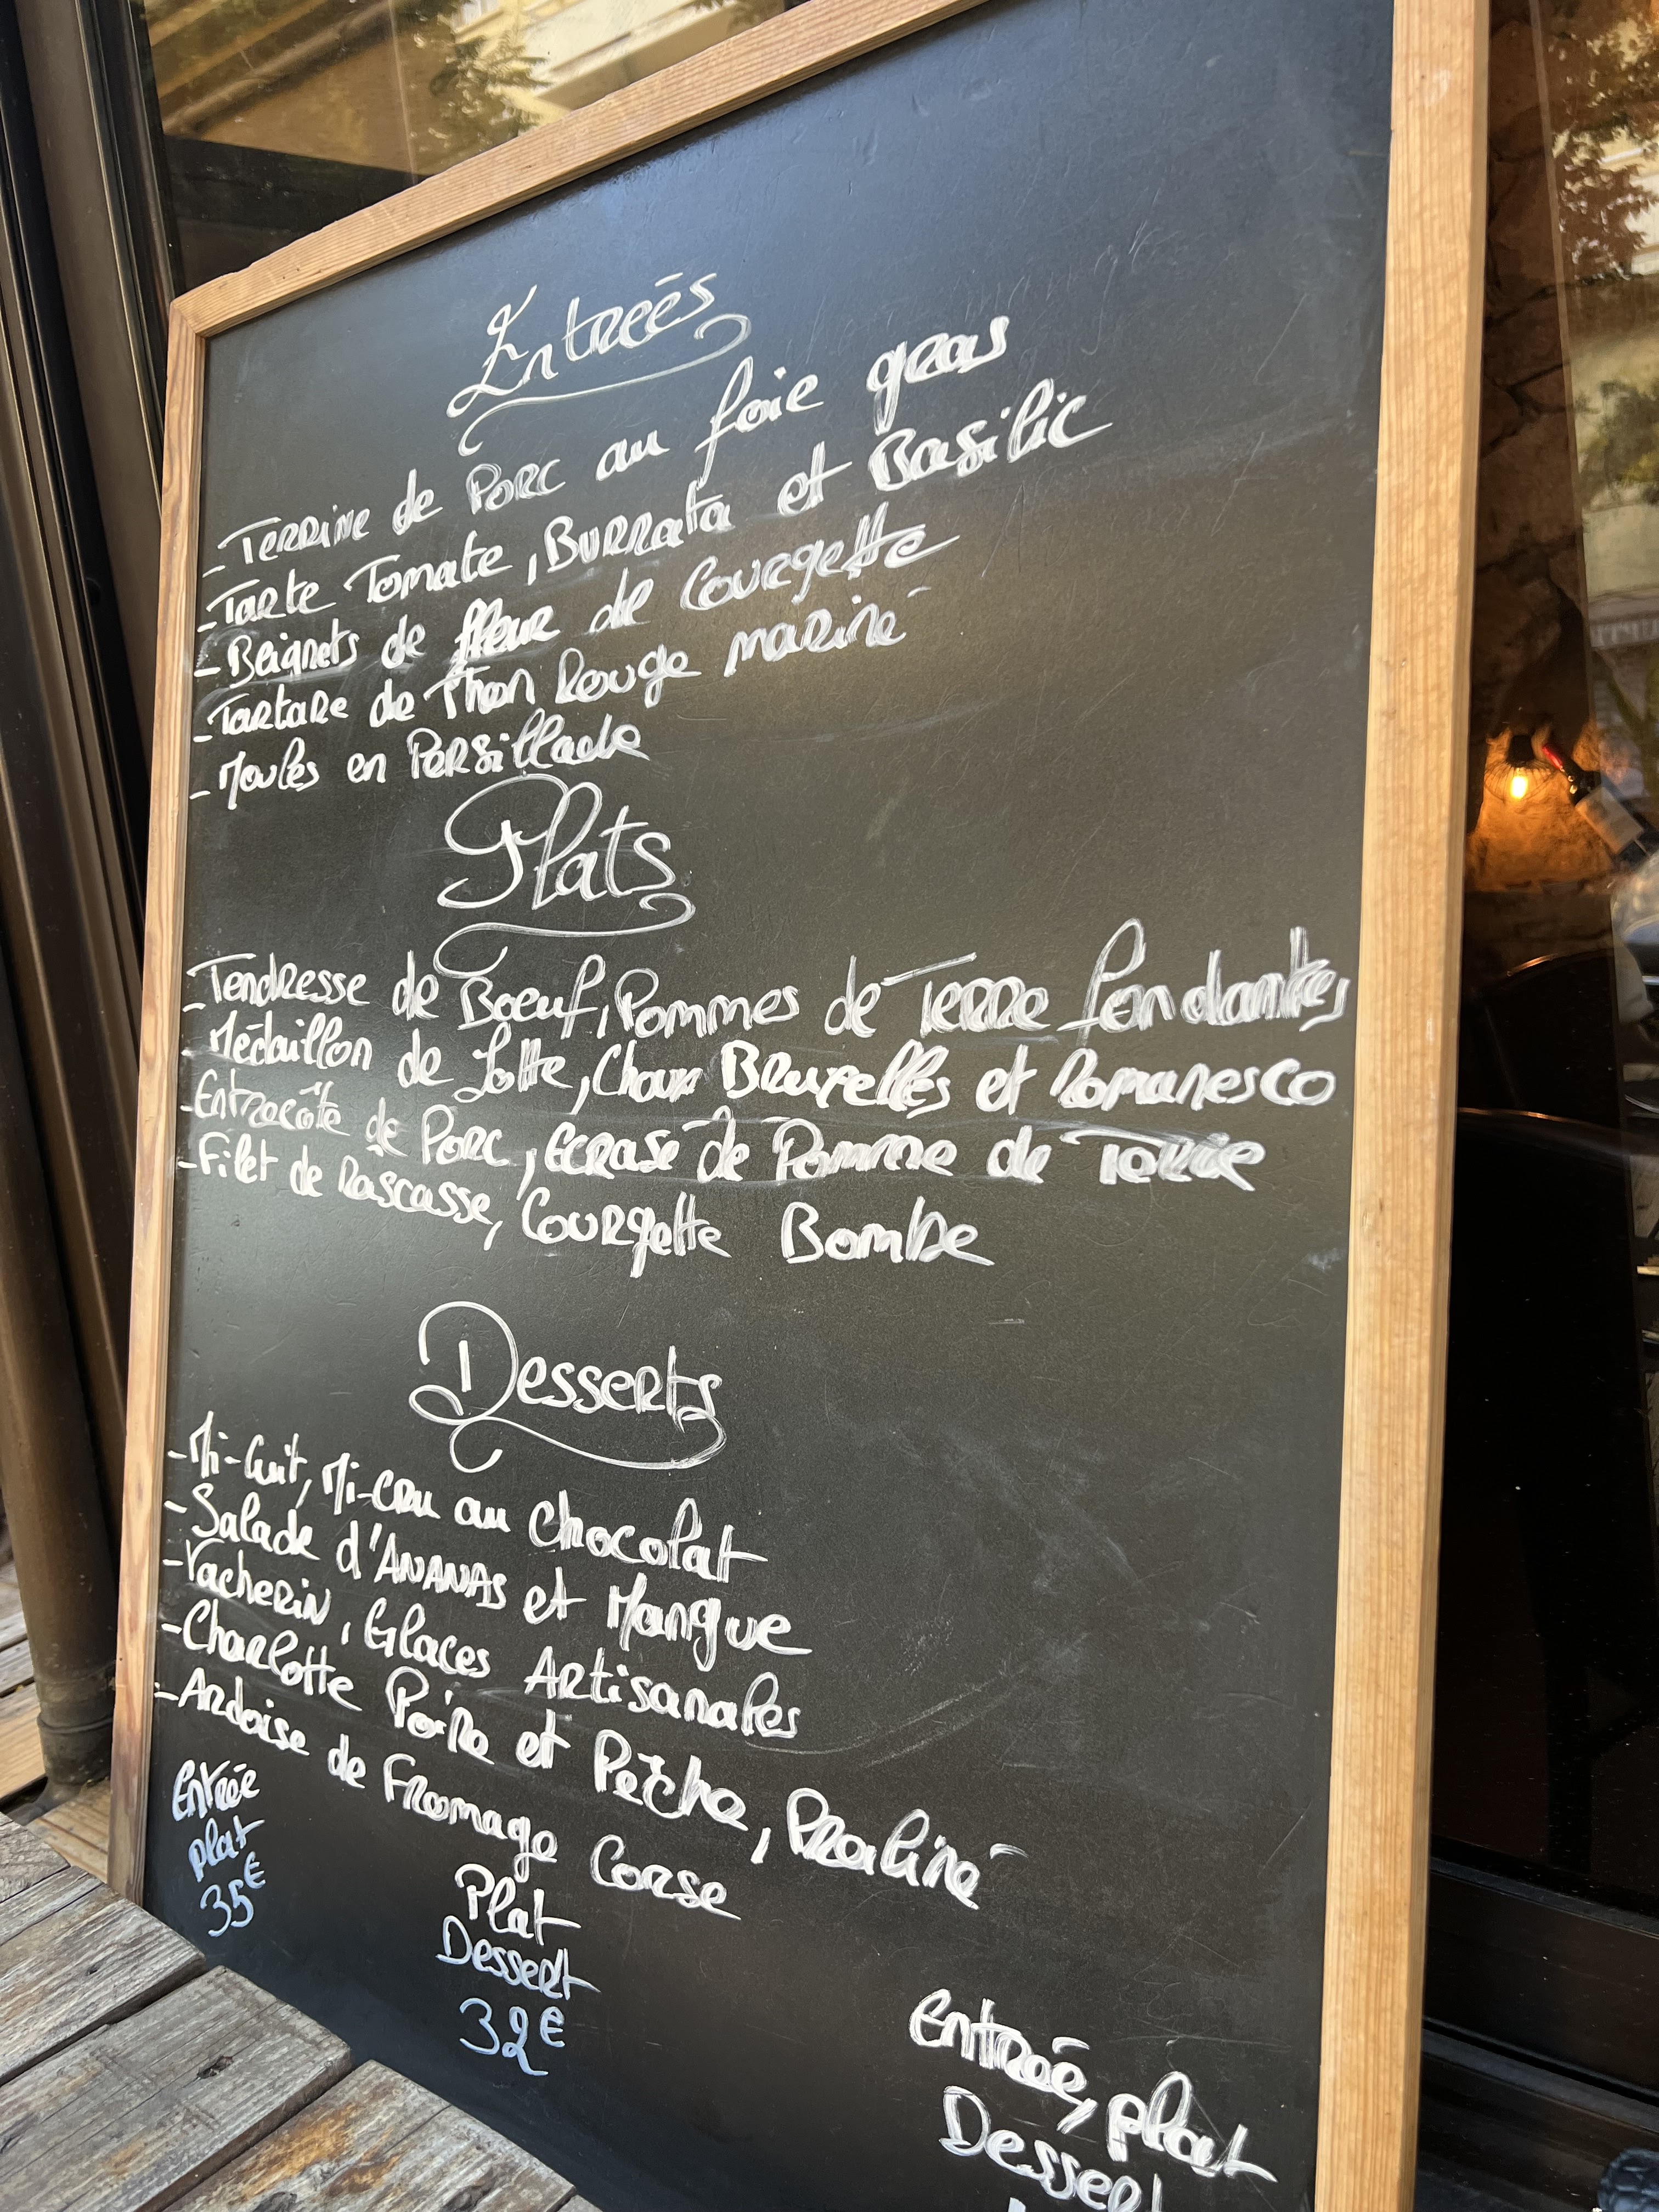 Entreés
- Terrine de Porc au foie gras
- Tarte Tomate, Burrata et Basilic
- Beignets de fleur de Courgette
- Tartare de Thon Rouge mariné
- Moules en Persillade
Plats
- Tendresse de Boeuf, Pommes de Terre fondantes
- Médaillon de Lotte, Choux Bruxelles et Romanesco
- Entrecôte de Porc, Ecrasé de Pomme de Terre
- Filet de Rascasse, Courgette Bombe
Desserts
- Mi-Cuit, Mi-cru au chocolat
- Salade d'Ananas et Mangue
- Vacherin, Glaces Artisanales
- Charlotte Poire et Pêche, Praliné
- Ardoise de Fromage Corse
Entrée
plat
35€
Plat
Dessert
32€
Entrée, plat
Dessert